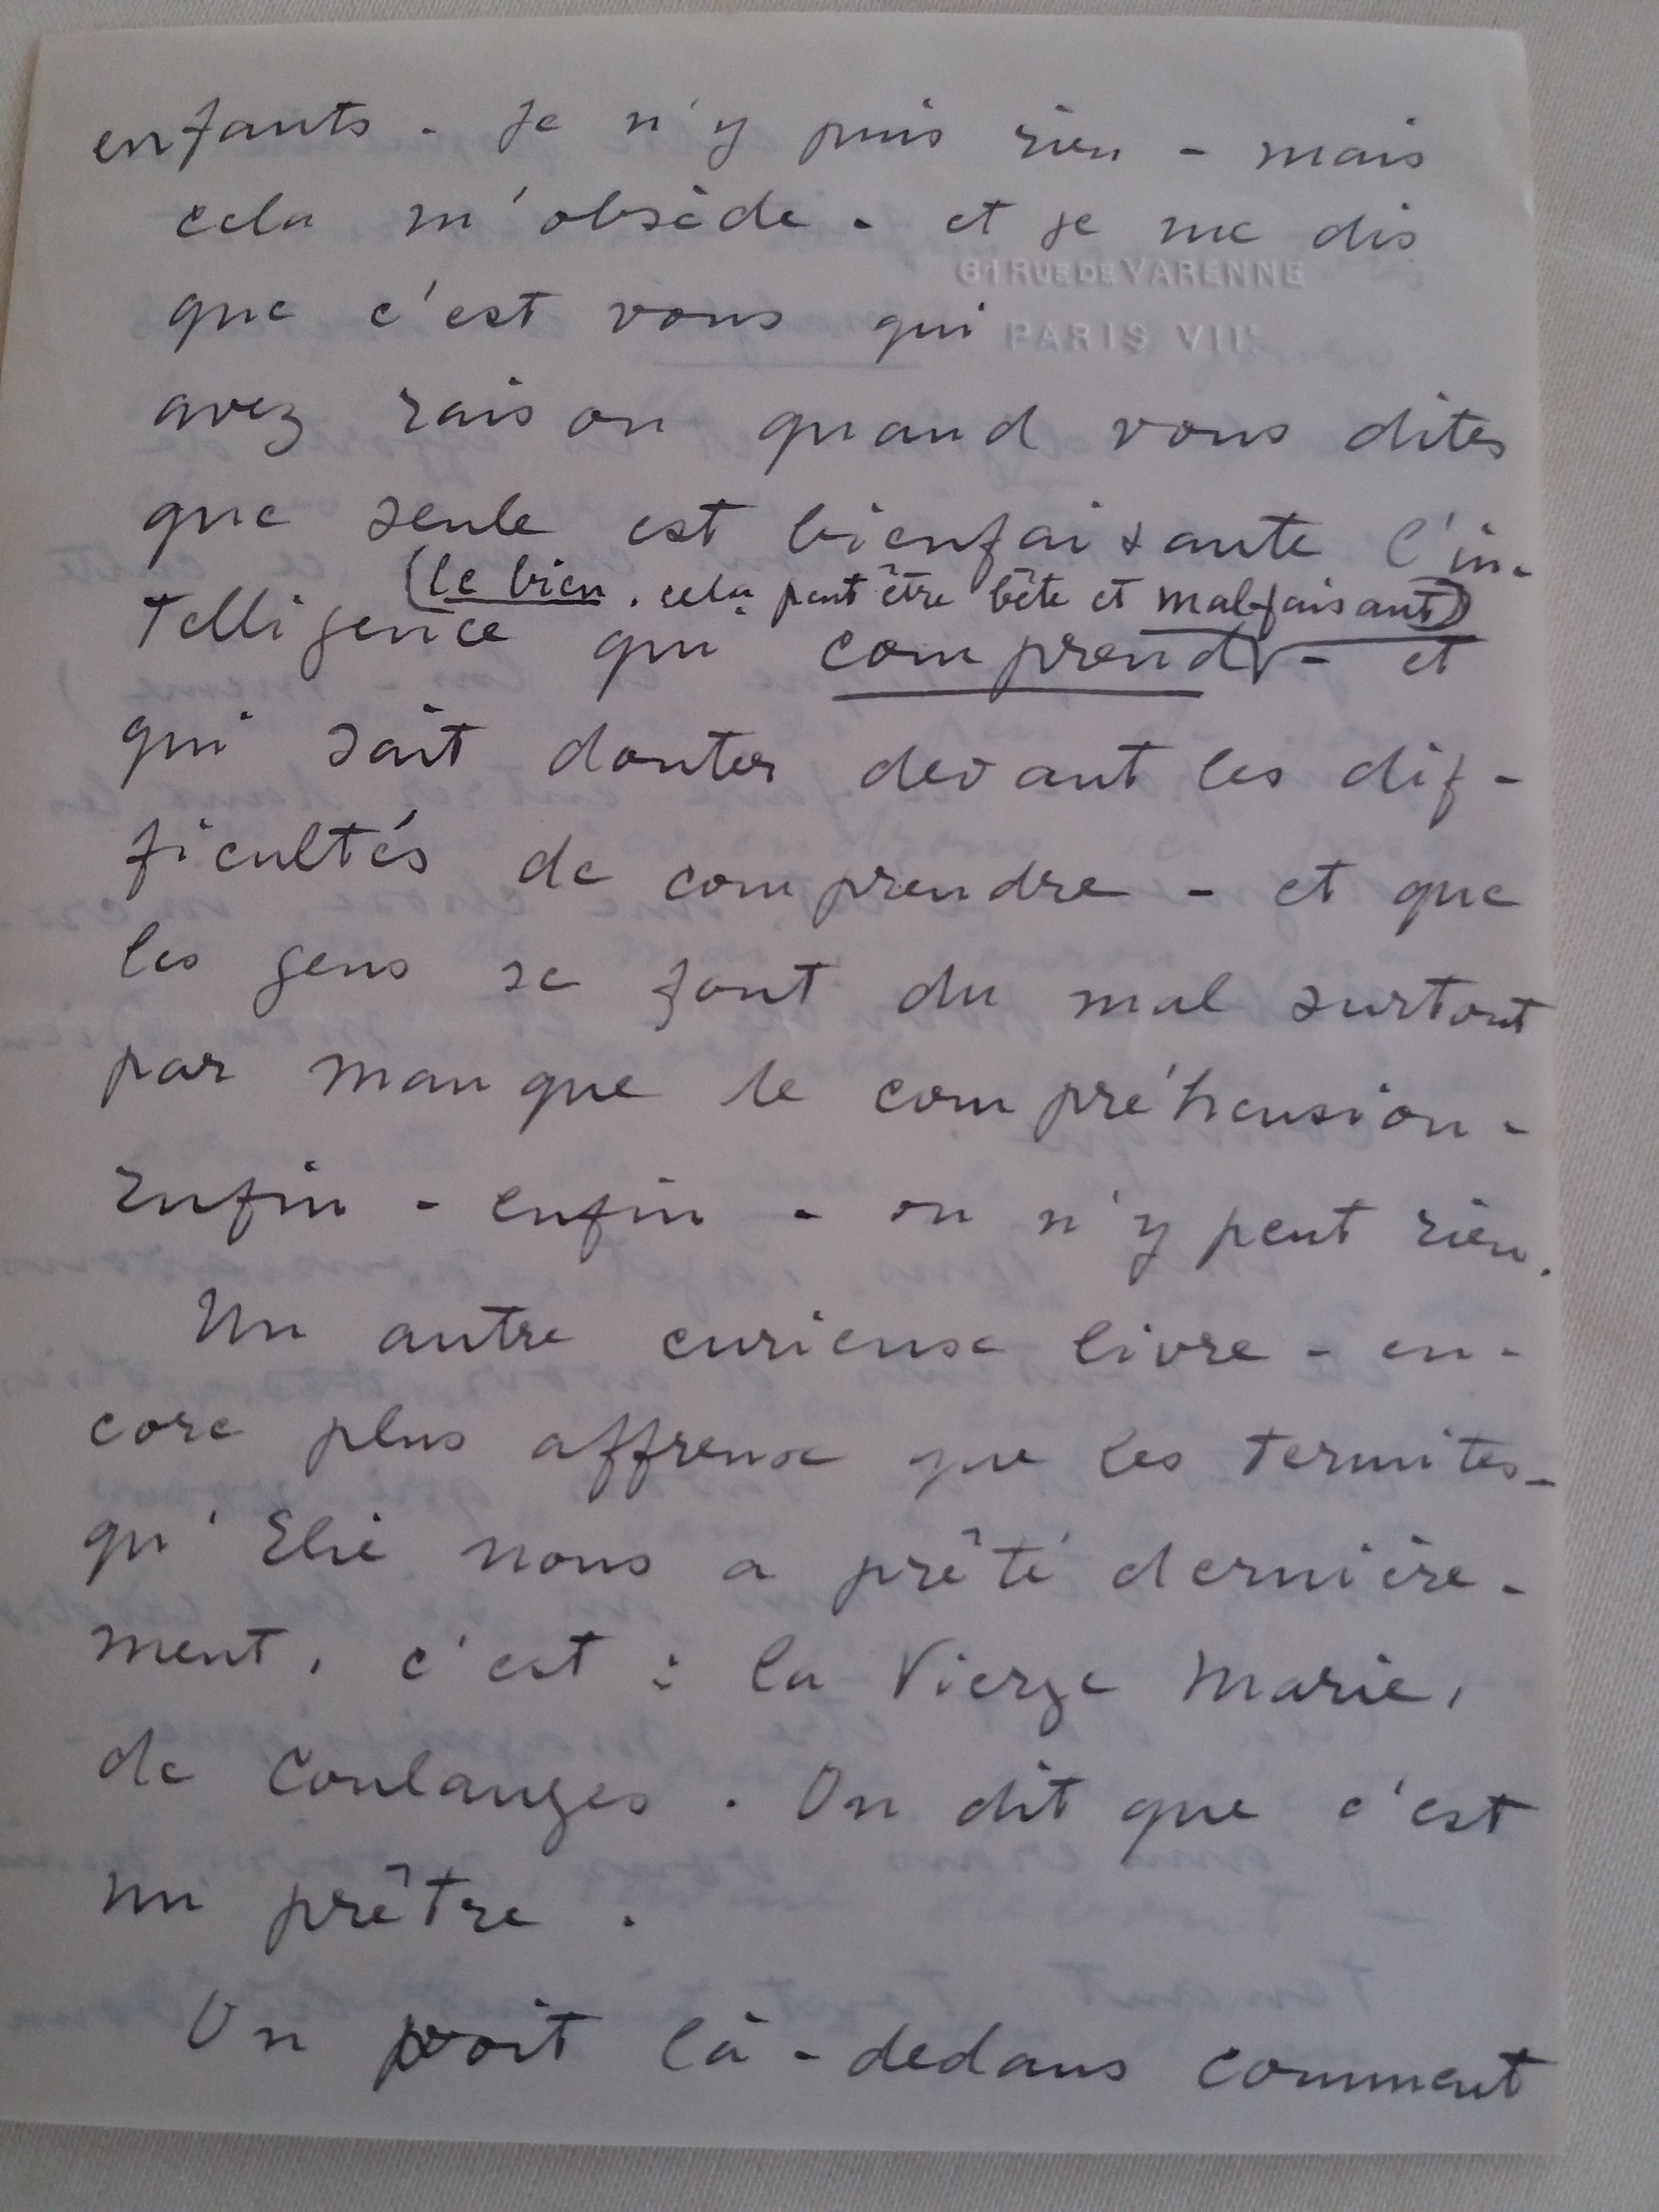 enfants - Je n'y puis rien - mais
cela m'obsède - et je me dis
61 RUE DE VARENNE
que c'est vous qui
PARIS VIIE
avez raison quand vous dites
que seule est bienfaisante l'in-
(le bien, cela peut être bête et malfaisant)
telligence qui comprend - et
qui sait douter devant les dif-
ficultés de comprendre - et que
les gens se font du mal surtout
par manque de compréhension -
Enfin - enfin - on n'y peut rien.
Un autre curieux livre - en-
core plus affreux que les termites -
qu'Elie nous a prêté dernière-
ment, c'est : la Vierge Marie,
de Coulanges. On dit que c'est
un prêtre.
On voit là-dedans comment